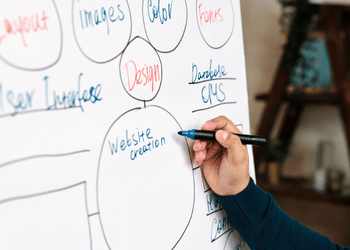 Layout
Images
Color
Fonts
Design
User Interfase
Databale
CMS
Website
creation